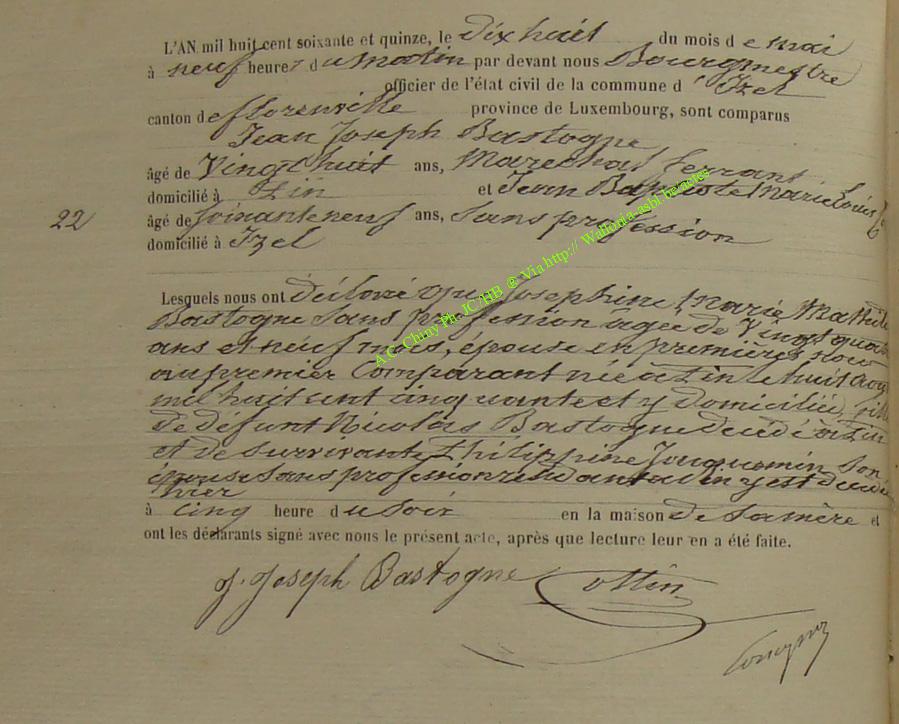 L'AN mil huit cent soixante et quinze, le dix huit du mois de mai
à neuf heures du matin par devant nous Bourgmestre
officier de l'état civil de la commune d'Izel
canton de florenville province de Luxembourg, sont comparus
Jean Joseph Bastogne
âgé de Vingt huit ans, Marechal ferrant
domicilié à Pin et Jean Baptiste Marie Louis
22 âgé de soixante neuf ans, sans profession
domicilié à Izel
Lesquels nous ont déclaré que Josephine Marie Mathil
Bastogne sans profession âgée de Vingt quat
ans et neuf mois, epouse en premières noces
au premier Comparant née à Pin le huit aou
mil huit cent cinquante et y domiciliée, fille
de défunt Nicolas Bastogne décédé à Pin
et de survivante Philippine Jacquemin son
épouse sans profession à Pin y est décédé
hier
à cinq heure du soir en la maison de sa mère et
ont les déclarants signé avec nous le présent acte, après que lecture leur en a été faite.
J. Joseph Bastogne Collin
A C- Chiny Ph. JC/HB @ Via http:// Wallonia-asbl.be/actes